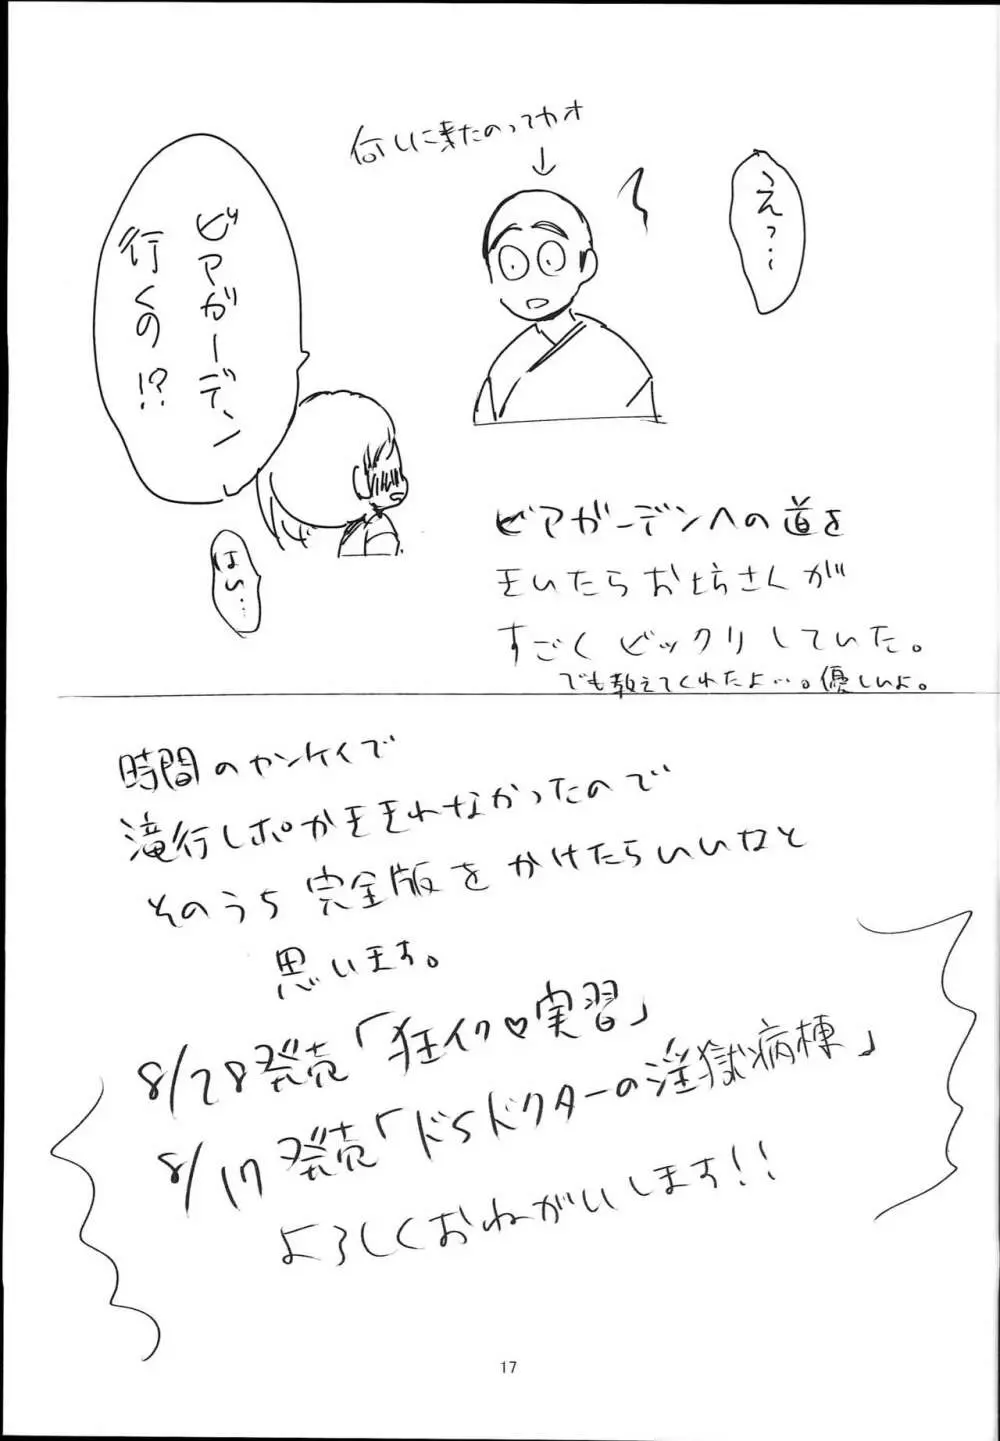 えっ…
何しに来たのってカオ
↓
ビアガーデン
行くの!?
はい…
ビアガーデンへの道を
きいたらお坊さんが
すごくビックリしていた。
でも教えてくれたよ…。優しいよ。
時間のカンケイで
滝行レポがかききれなかったので
そのうち完全版をかけたらいいなと
思います。
8/28発売「狂イク♡実習」
8/17発売「ドSドクターの淫獄病棟」
よろしくおねがいします!!
17